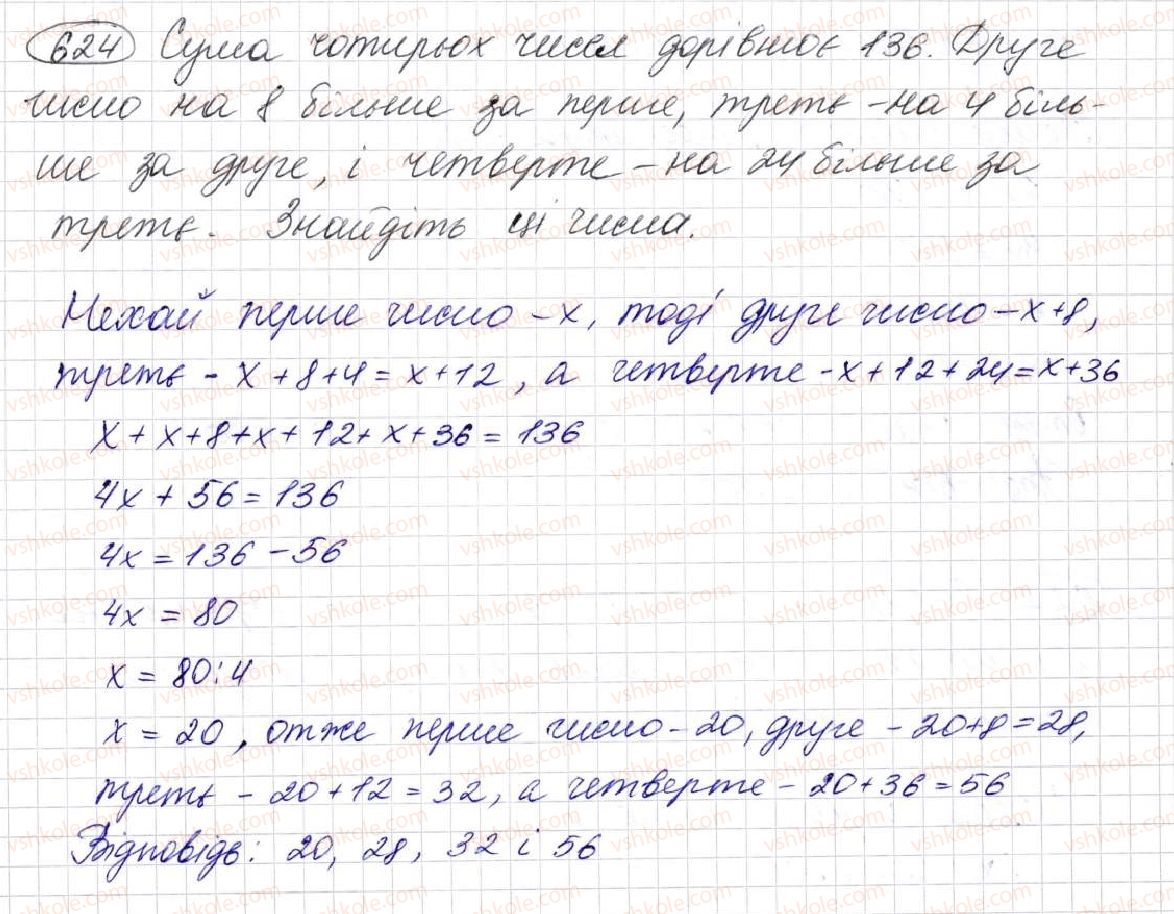 624 Сума чотирьох чисел дорівнює 136. Друге
число на 8 більше за перше, третє - на 4 біль-
ше за друге, і четверте - на 24 більше за
третє. Знайдіть ці числа.
Нехай перше число - x, тоді друге число - x+8,
третє - x + 8 + 4 = x + 12, а четверте - x + 12 + 24 = x + 36
x + x + 8 + x + 12 + x + 36 = 136
4x + 56 = 136
4x = 136 - 56
4x = 80
x = 80 : 4
x = 20, отже перше число - 20, друге - 20+8 = 28,
третє - 20 + 12 = 32, а четверте - 20 + 36 = 56
Відповідь: 20, 28, 32 і 56